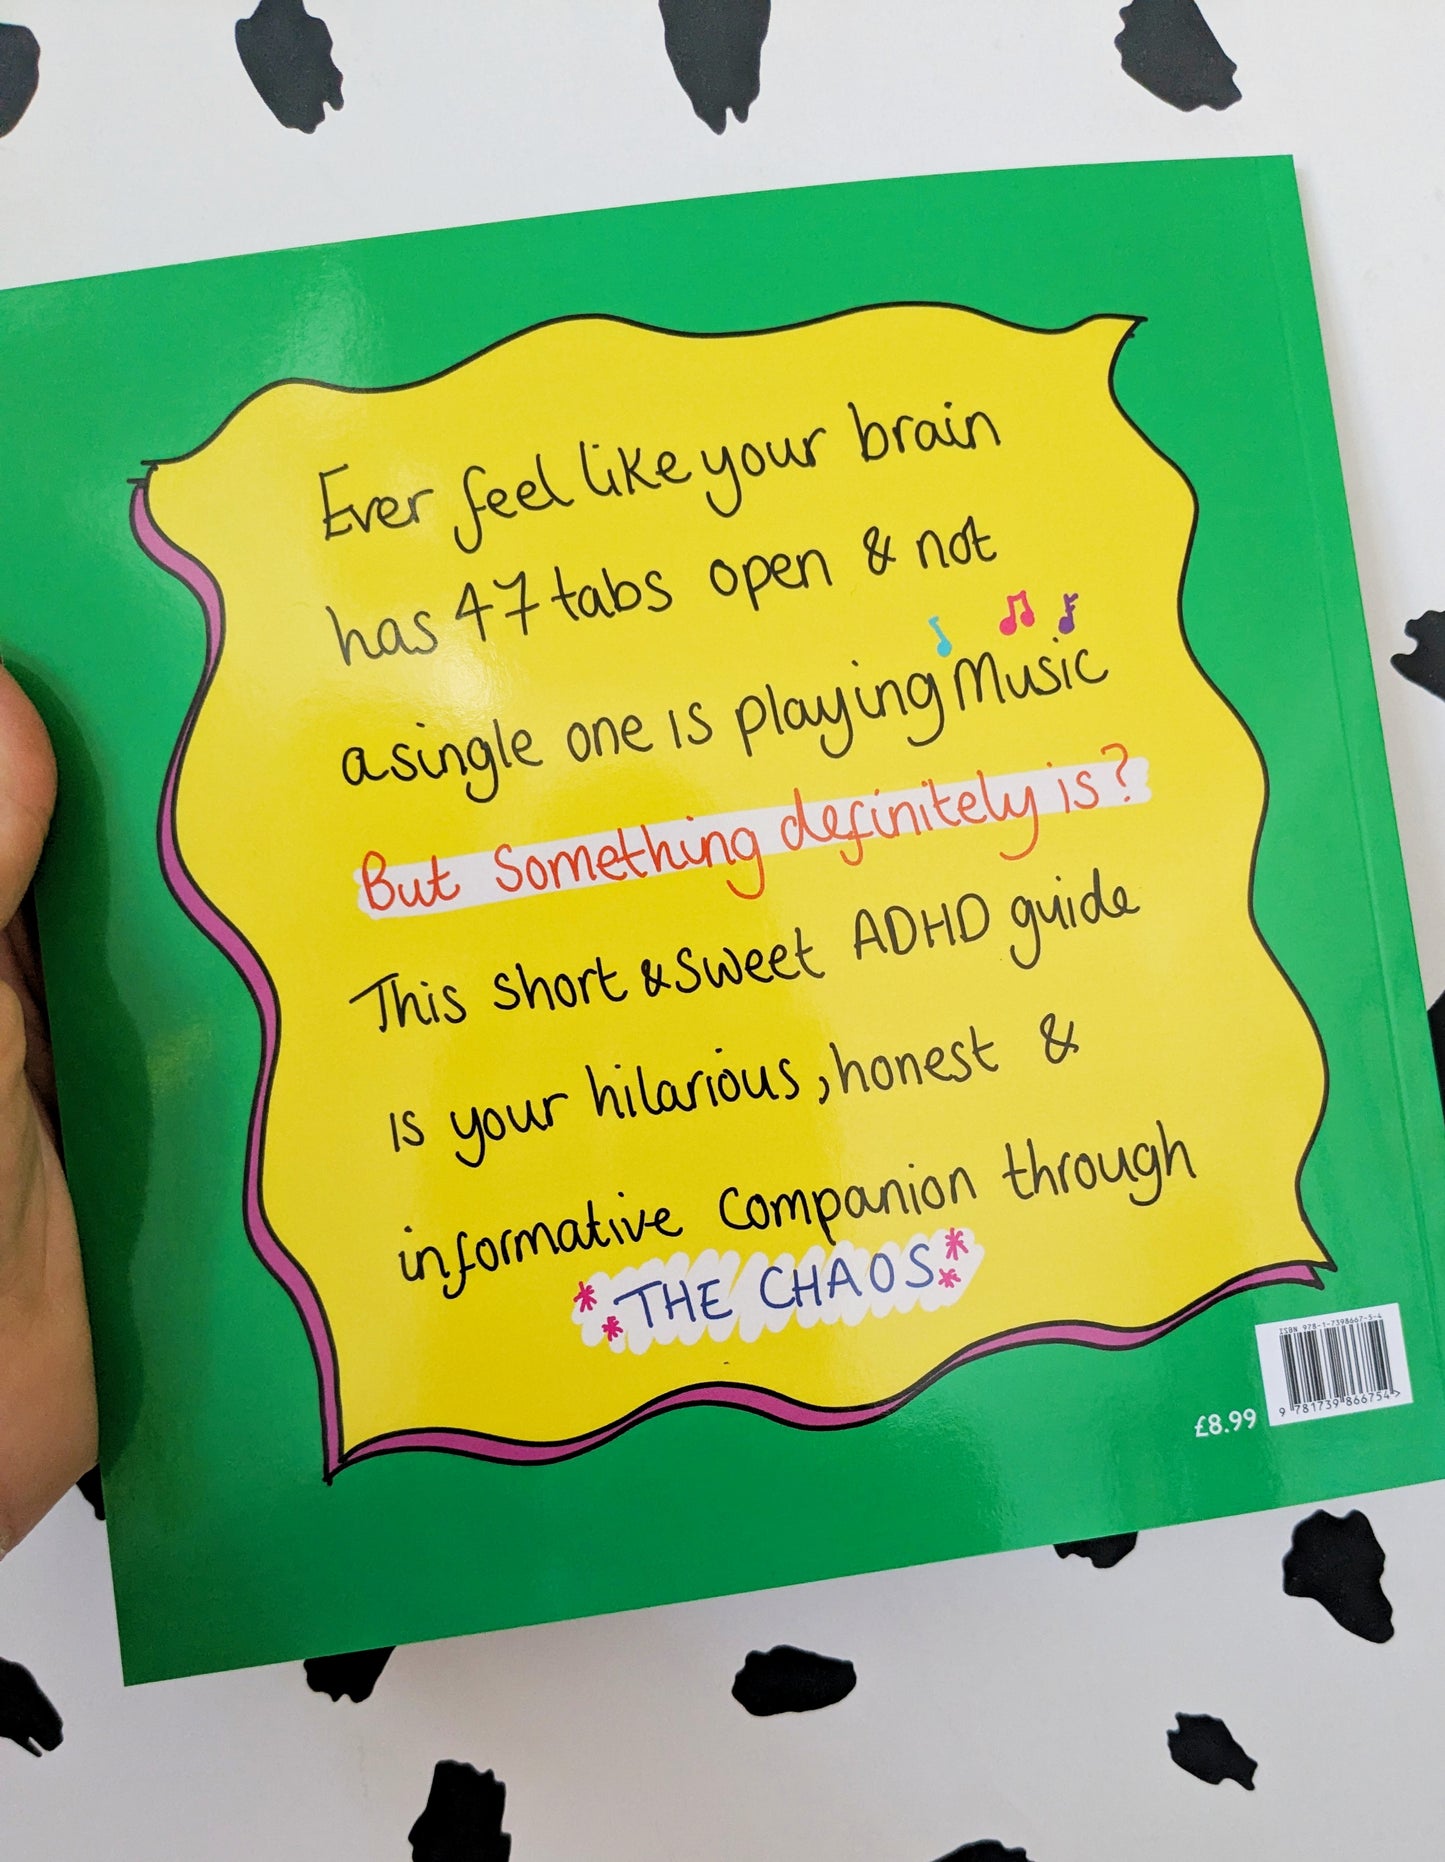 Ever feel like your brain
has 47 tabs open & not
a single one is playing Music
But Something definitely is?
This short & Sweet ADHD guide
is your hilarious, honest &
informative Companion through
*THE CHAOS*
ISBN 978-1-7398667-5-4
9 781739 866754 >
£8.99